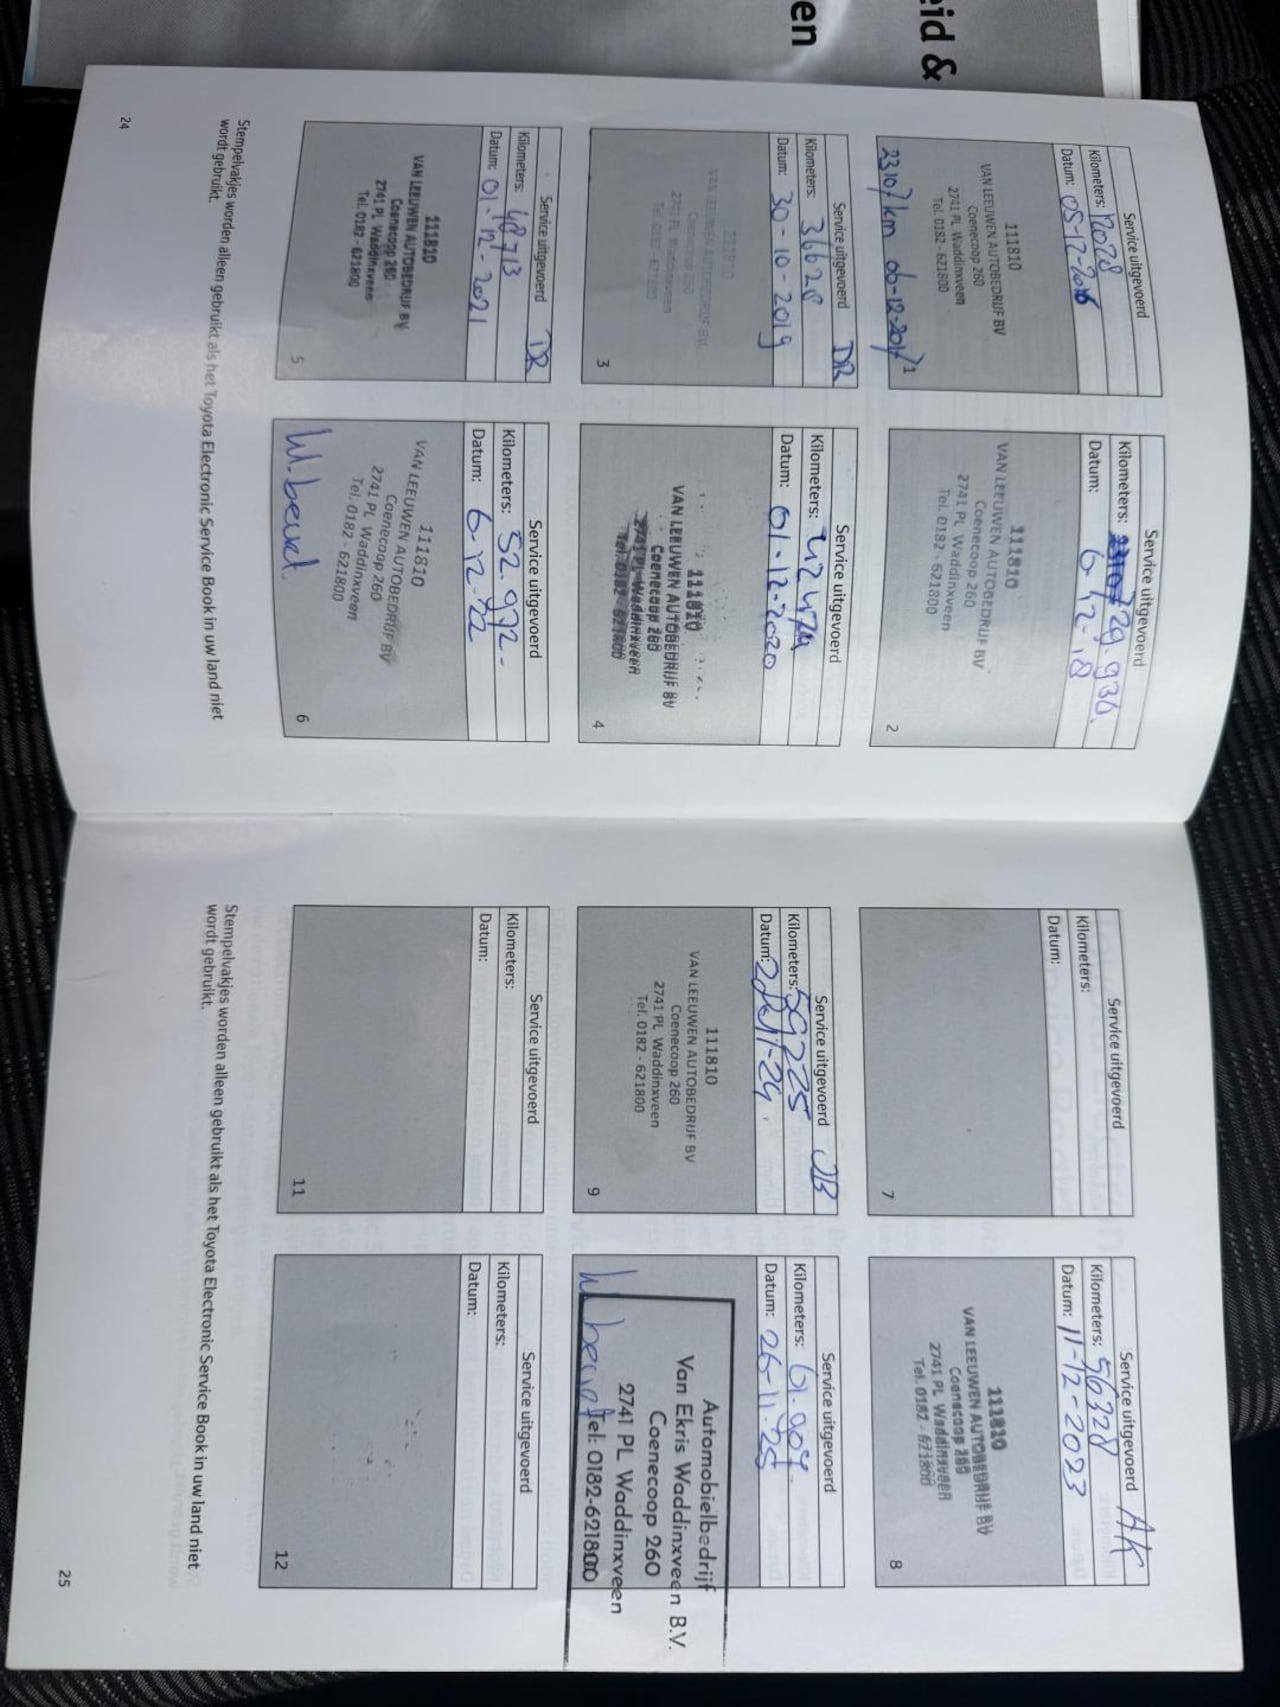 eid &
en
Service uitgevoerd
Kilometers: 12028
Datum: 05-12-2016
111810
VAN LEEUWEN AUTOBEDRIJF BV
Coenecoop 260
2741 PL Waddinxveen
Tel. 0182 - 621800
23107 km 06-12-2017
1
Service uitgevoerd
Kilometers: 29.936.
Datum: 6-12-18
111810
VAN LEEUWEN AUTOBEDRIJF BV
Coenecoop 260
2741 PL Waddinxveen
Tel. 0182 - 621800
2
Service uitgevoerd DR
Kilometers: 36628
Datum: 30-10-2019
111810
VAN LEEUWEN AUTOBEDRIJF BV
Coenecoop 260
2741 PL Waddinxveen
Tel. 0182 - 621800
3
Service uitgevoerd
Kilometers: 42474
Datum: 01-12-2020
111810
VAN LEEUWEN AUTOBEDRIJF BV
Coenecoop 260
2741 PL Waddinxveen
Tel. 0182 - 621800
4
Service uitgevoerd DR
Kilometers: 48713
Datum: 01-12-2021
111810
VAN LEEUWEN AUTOBEDRIJF BV
Coenecoop 260
2741 PL Waddinxveen
Tel. 0182 - 621800
5
Service uitgevoerd
Kilometers: 52.992-
Datum: 6-12-22
111810
VAN LEEUWEN AUTOBEDRIJF BV
Coenecoop 260
2741 PL Waddinxveen
Tel. 0182 - 621800
6
Stempelvakjes worden alleen gebruikt als het Toyota Electronic Service Book in uw land niet
wordt gebruikt.
24
Service uitgevoerd
Kilometers:
Datum:
7
Service uitgevoerd AK
Kilometers: 56328
Datum: 11-12-2023
111810
VAN LEEUWEN AUTOBEDRIJF BV
Coenecoop 260
2741 PL Waddinxveen
Tel. 0182 - 621800
8
Service uitgevoerd JB
Kilometers: 59225
Datum:
111810
VAN LEEUWEN AUTOBEDRIJF BV
Coenecoop 260
2741 PL Waddinxveen
Tel. 0182 - 621800
9
Service uitgevoerd
Kilometers:
Datum: 26-11-'25
Automobielbedrijf
Van Ekris Waddinxveen B.V.
Coenecoop 260
2741 PL Waddinxveen
Tel: 0182-621800
Service uitgevoerd
Kilometers:
Datum:
11
Service uitgevoerd
Kilometers:
Datum:
12
Stempelvakjes worden alleen gebruikt als het Toyota Electronic Service Book in uw land niet
wordt gebruikt.
25